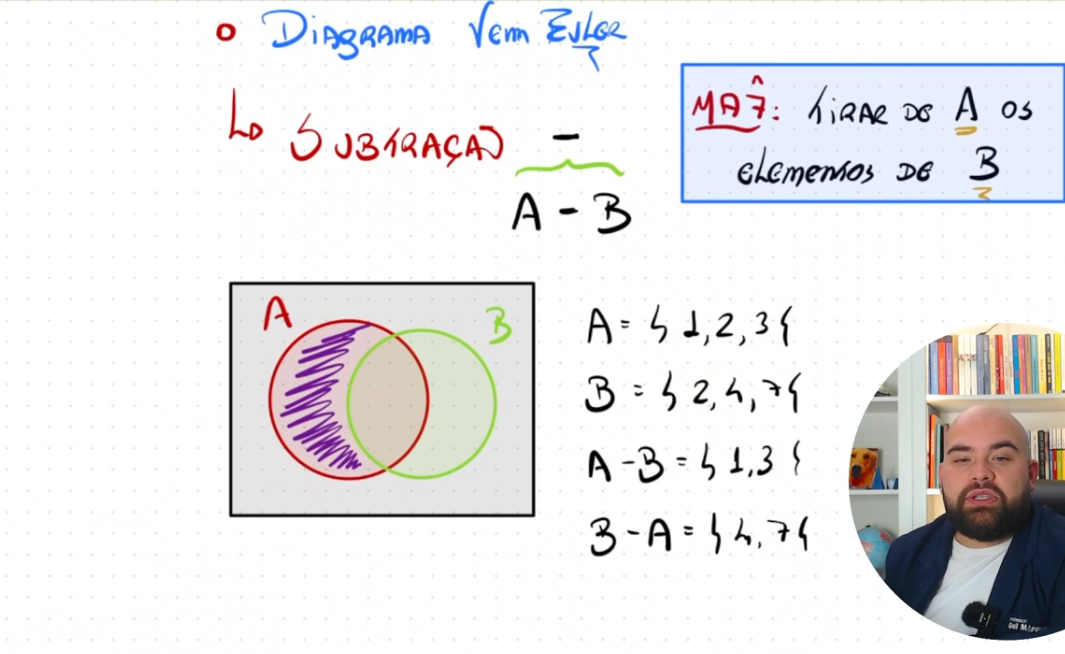 DIAGRAMA VENN EULER
SUBTRAÇÃO -
A - B
MAT: TIRAR DE A OS
ELEMENTOS DE B
A B
A = { 1, 2, 3 }
B = { 2, 4, 7 }
A - B = { 1, 3 }
B - A = { 4, 7 }